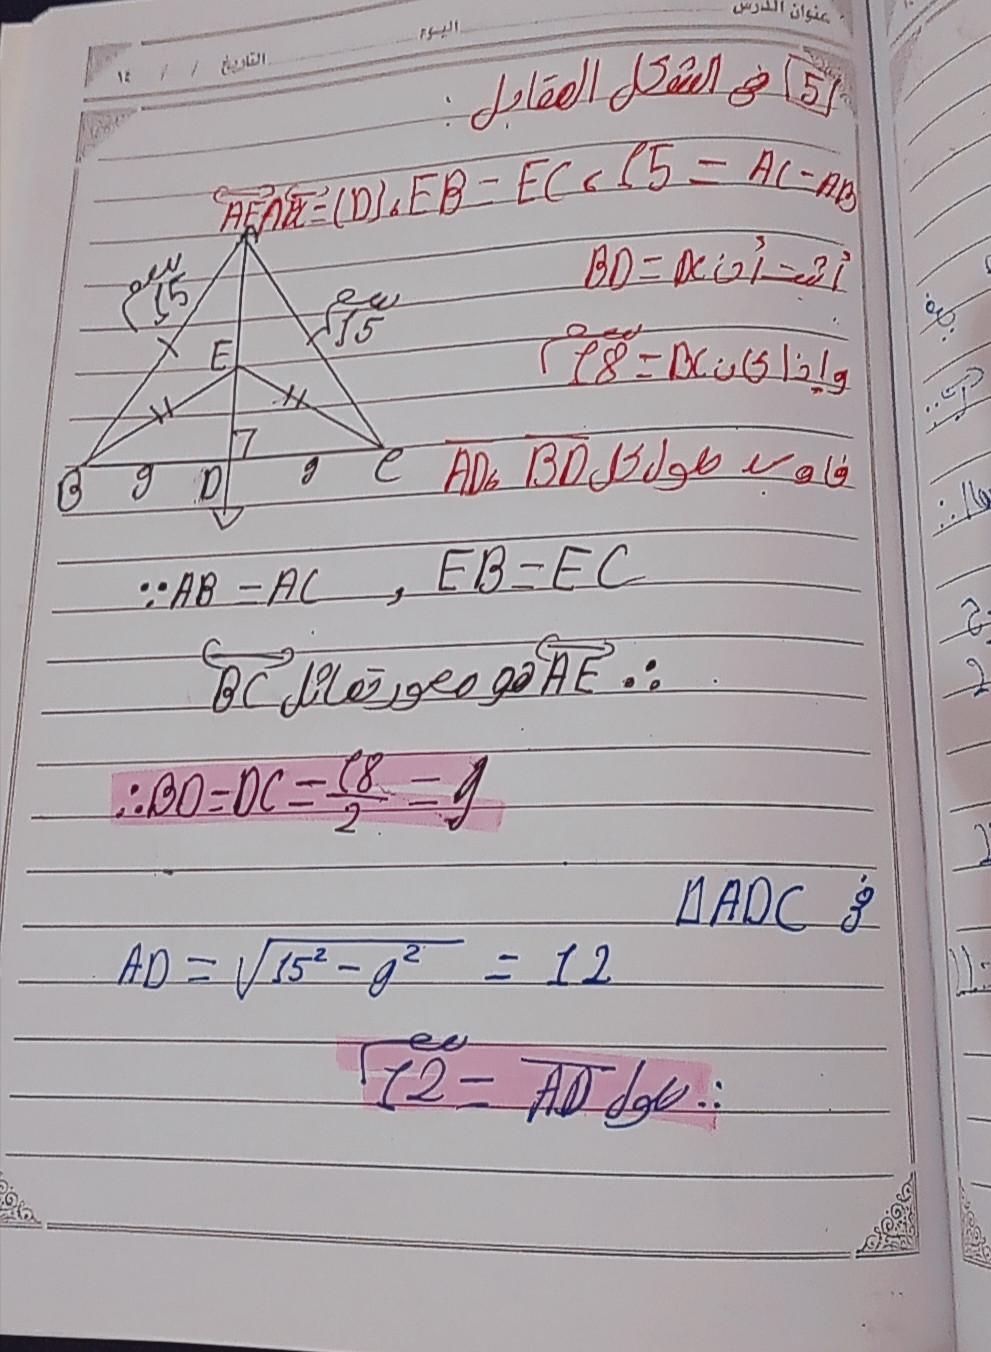 عنوان الدرس
اليوم
التاريخ / / ١٤
5 في الشكل المقابل :
AC = AB = 15 ، EB = EC ، AE ∩ BC = {D}
أثبت أن BD = DC
وإذا كان BC = 18 سم
فأوجد طول كل BD ، AD
A
15 سم
15 سم
E
B 9 D 9 C
∵ AB = AC , EB = EC
∴ AE هو محور تماثل BC
∴ BD = DC = 18/2 = 9
في ΔADC
AD = √15² - 9² = 12
∴ طول AD = 12 سم